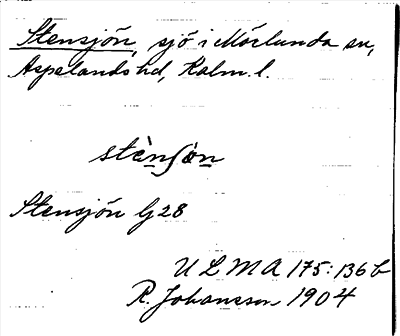 Stensjön, sjö i Mörlunda sn,
Aspelands hd, Kalm. l.
stènʃön
Stensjön G28
ULMA 175:136b
R. Johansson 1904